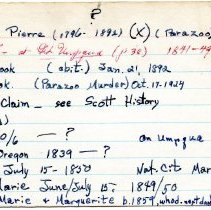 ?
Pierre (1796-1892) (X) (Parazoo
at Ft Umpqua (p 30) 1841-49
ook (obit.) Jan. 21, 1892
ok. (Parazoo Murder) Oct. 17-1924
Claim — see Scott History
)
0/6 — ? on Umpqua
Oregon 1839 — ?
July 15-1850 Nat. Cit Mar
Marie June/July 15- 1849/50
Marie & Marguerite b. 1859, whod. next day